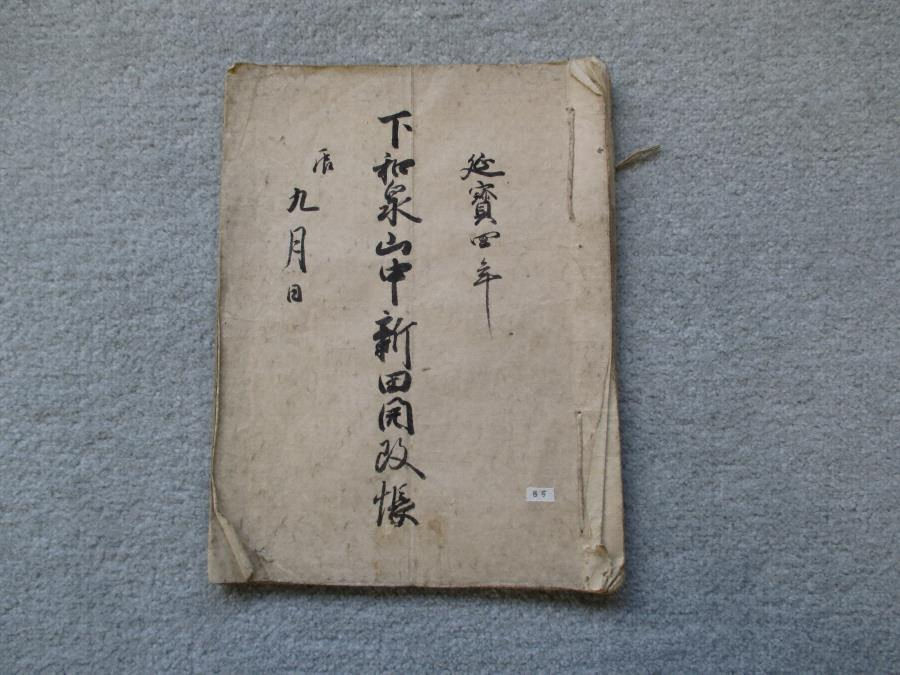 延寶四年
下和泉山中新田開改帳
辰
九月日
85